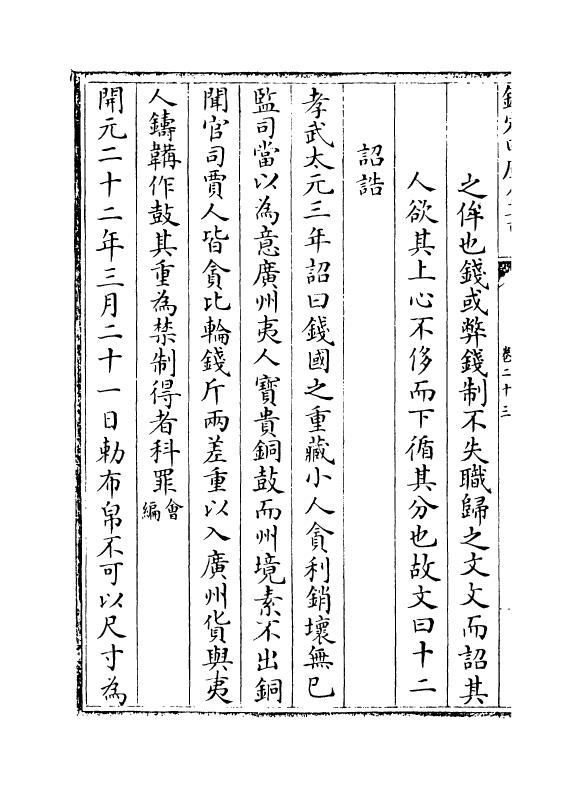 卷二十三
之侔也錢或弊錢制不失職歸之文文而詔其
人欲其上心不侈而下循其分也故文曰十二
詔誥
孝武太元三年詔曰錢國之重藏小人貪利銷壞無已
監司當以為意廣州夷人寶貴銅鼓而州境素不出銅
聞官司賈人皆貪比輪錢斤兩差重以入廣州貨與夷
人鑄鞲作鼓其重為禁制得者科罪會編
開元二十二年三月二十一日勅布帛不可以尺寸為